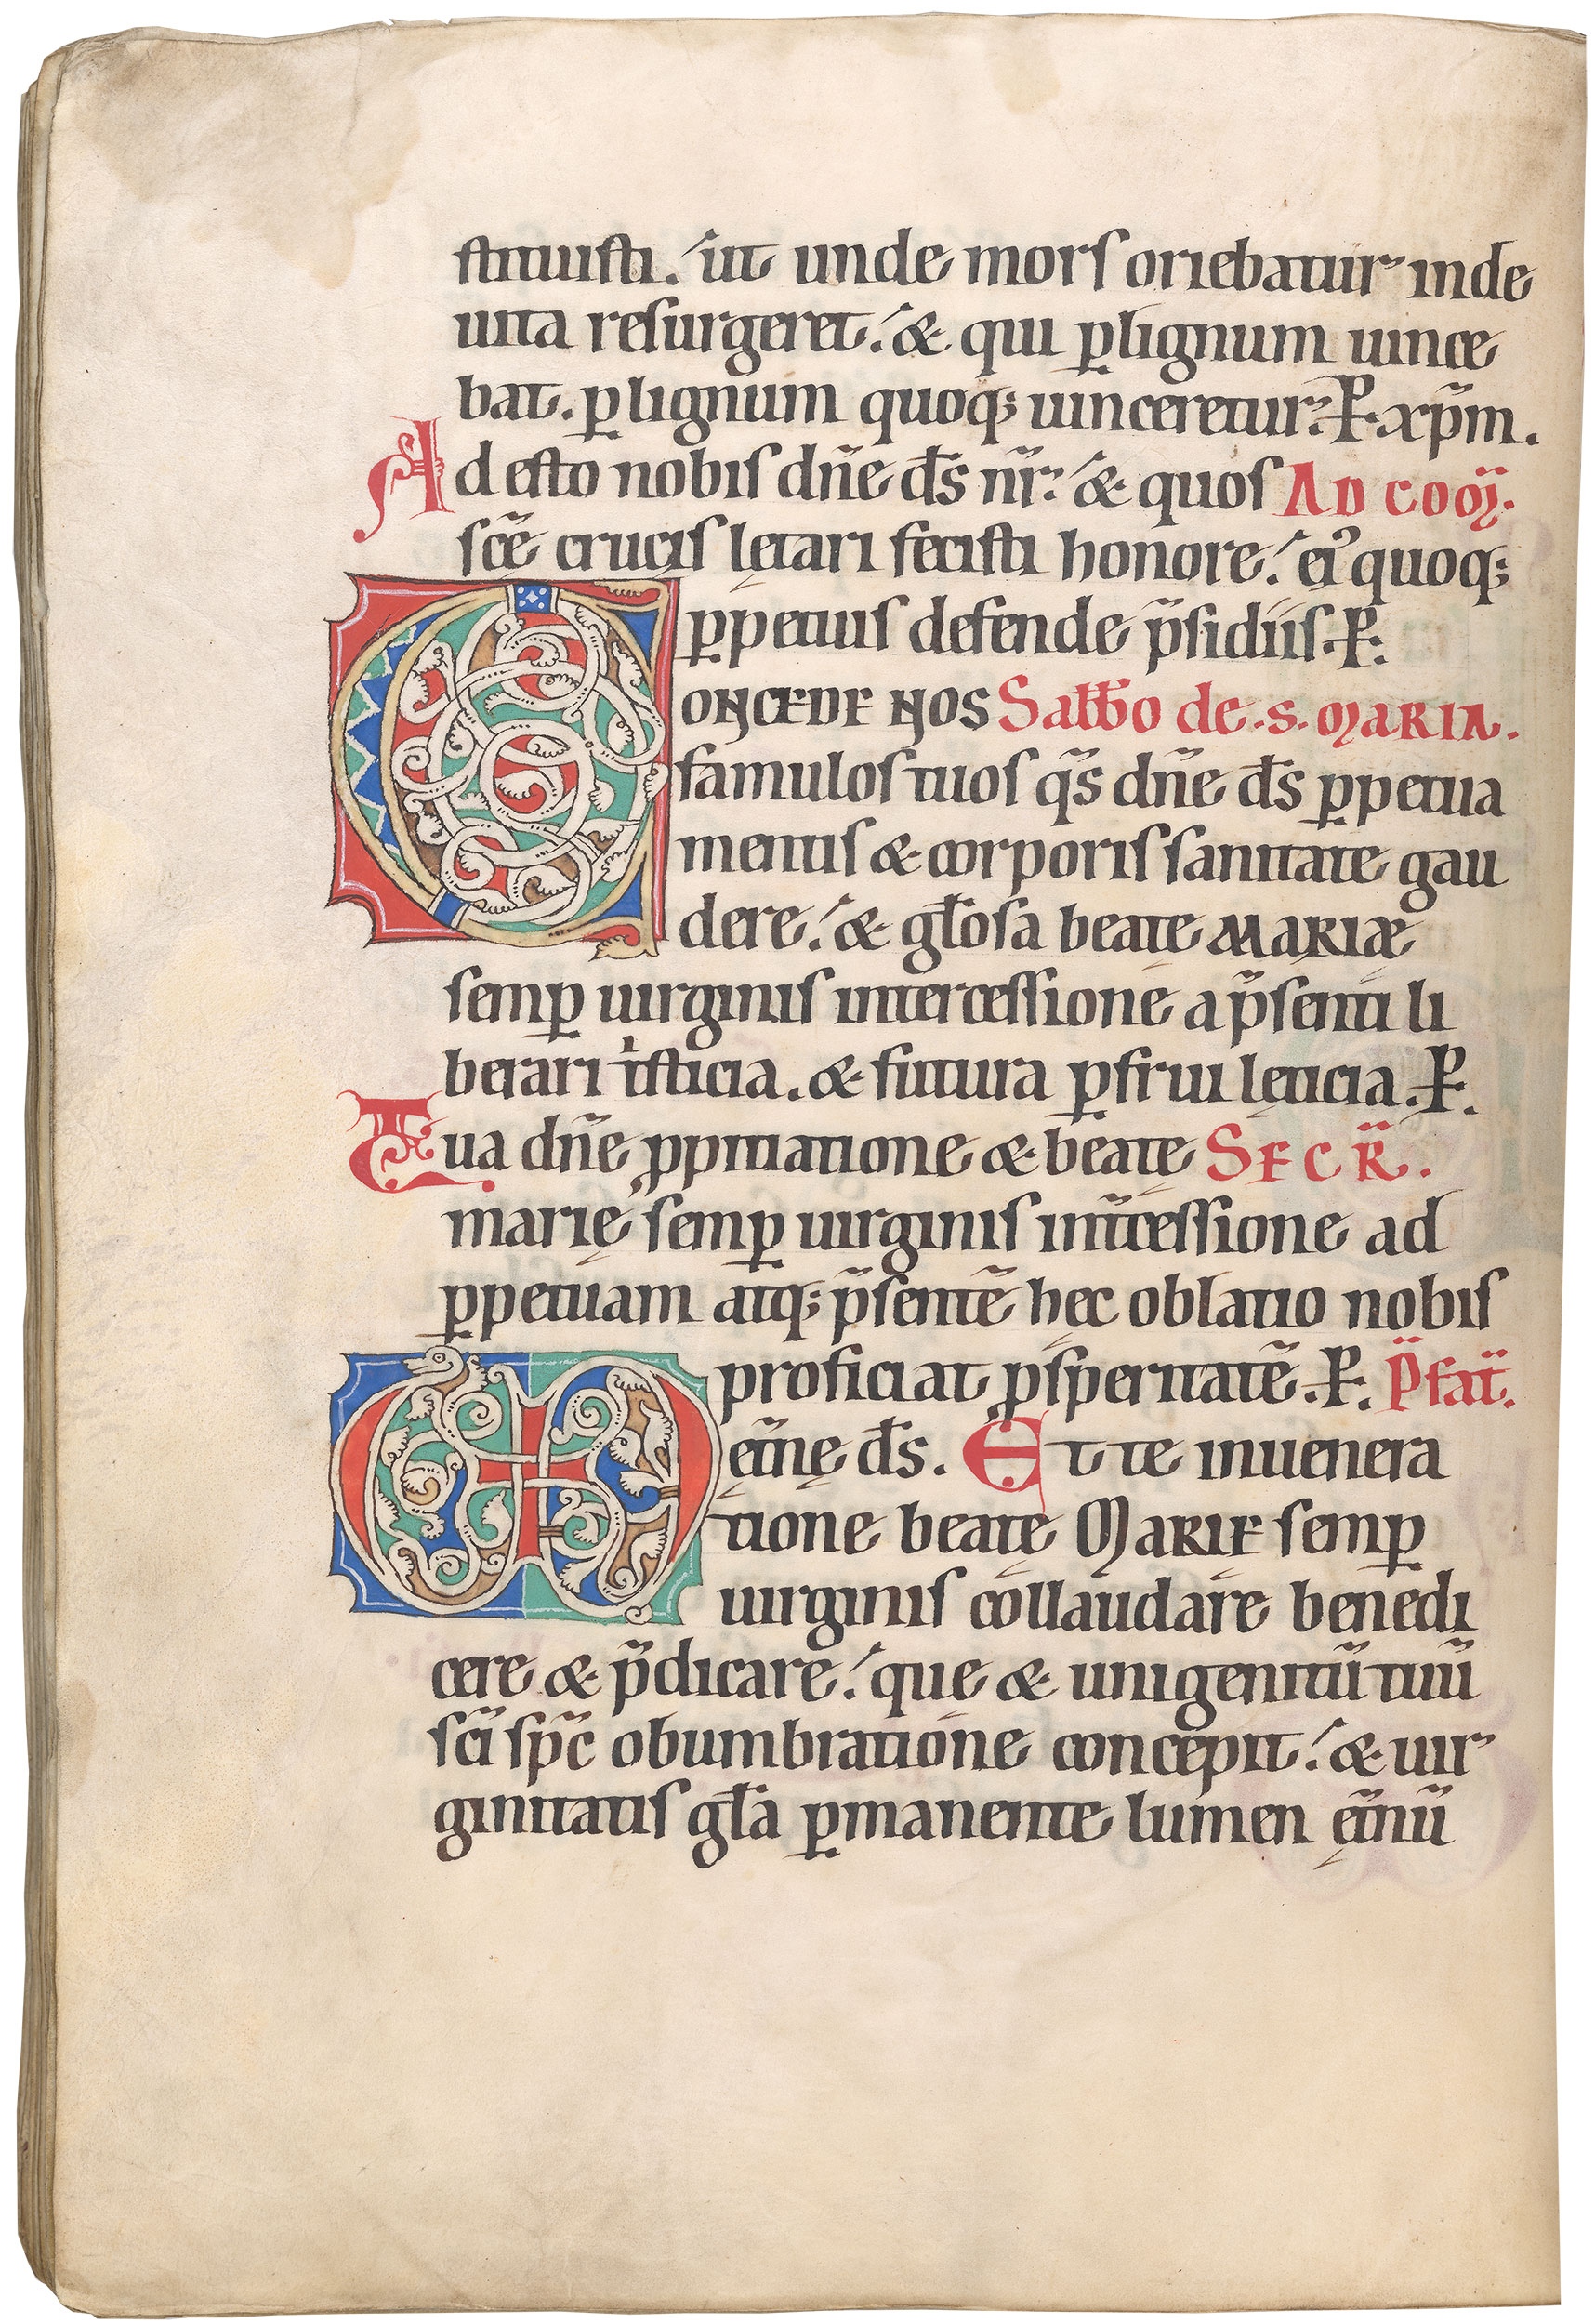 stituisti. ut unde mors oriebatur inde
uita resurgeret. & qui p̱lignum uince
bat. p̱ lignum quoq; uinceretur. P̱. xp̃m.
Adesto nobis dñe d̄s nr̃. & quos AD COM̃.
sc̃ę crucis lętari fecisti honore. ei⁹ quoq;
p̱petuis defende p̃sidiis. P̱.
CONCEDE NOS Sabb̄o de .s. MARIA.
famulos tuos q̃s dñe d̄s p̱petua
mentis & corporis sanitate gau
dere. & gl̄osa beatę MARIÆ
semp̱ uirginis intercessione a p̃senti li
berari tͥsticia. & futura p̱frui lęticia. P̱.
Tua dñe ꝓpitiatione & beatę SECR̃.
marię semp̱ uirginis int̃cessione ad
p̱petuam atq; p̃sentẽ hęc oblatio nobis
proficiat ꝓsperitatẽ. P̱. P̃fat̃.
ęt̃nę d̄s. Et te in uenera
tione beatę MARIĘ semp̱
uirginis collaudare benedi
cere & p̃dicare. que & unigenitũ tuũ
sc̃i sp̃c obumbratione concepit. & uir
ginitatis gl̄a p̱manente lumen ęt̃nũ